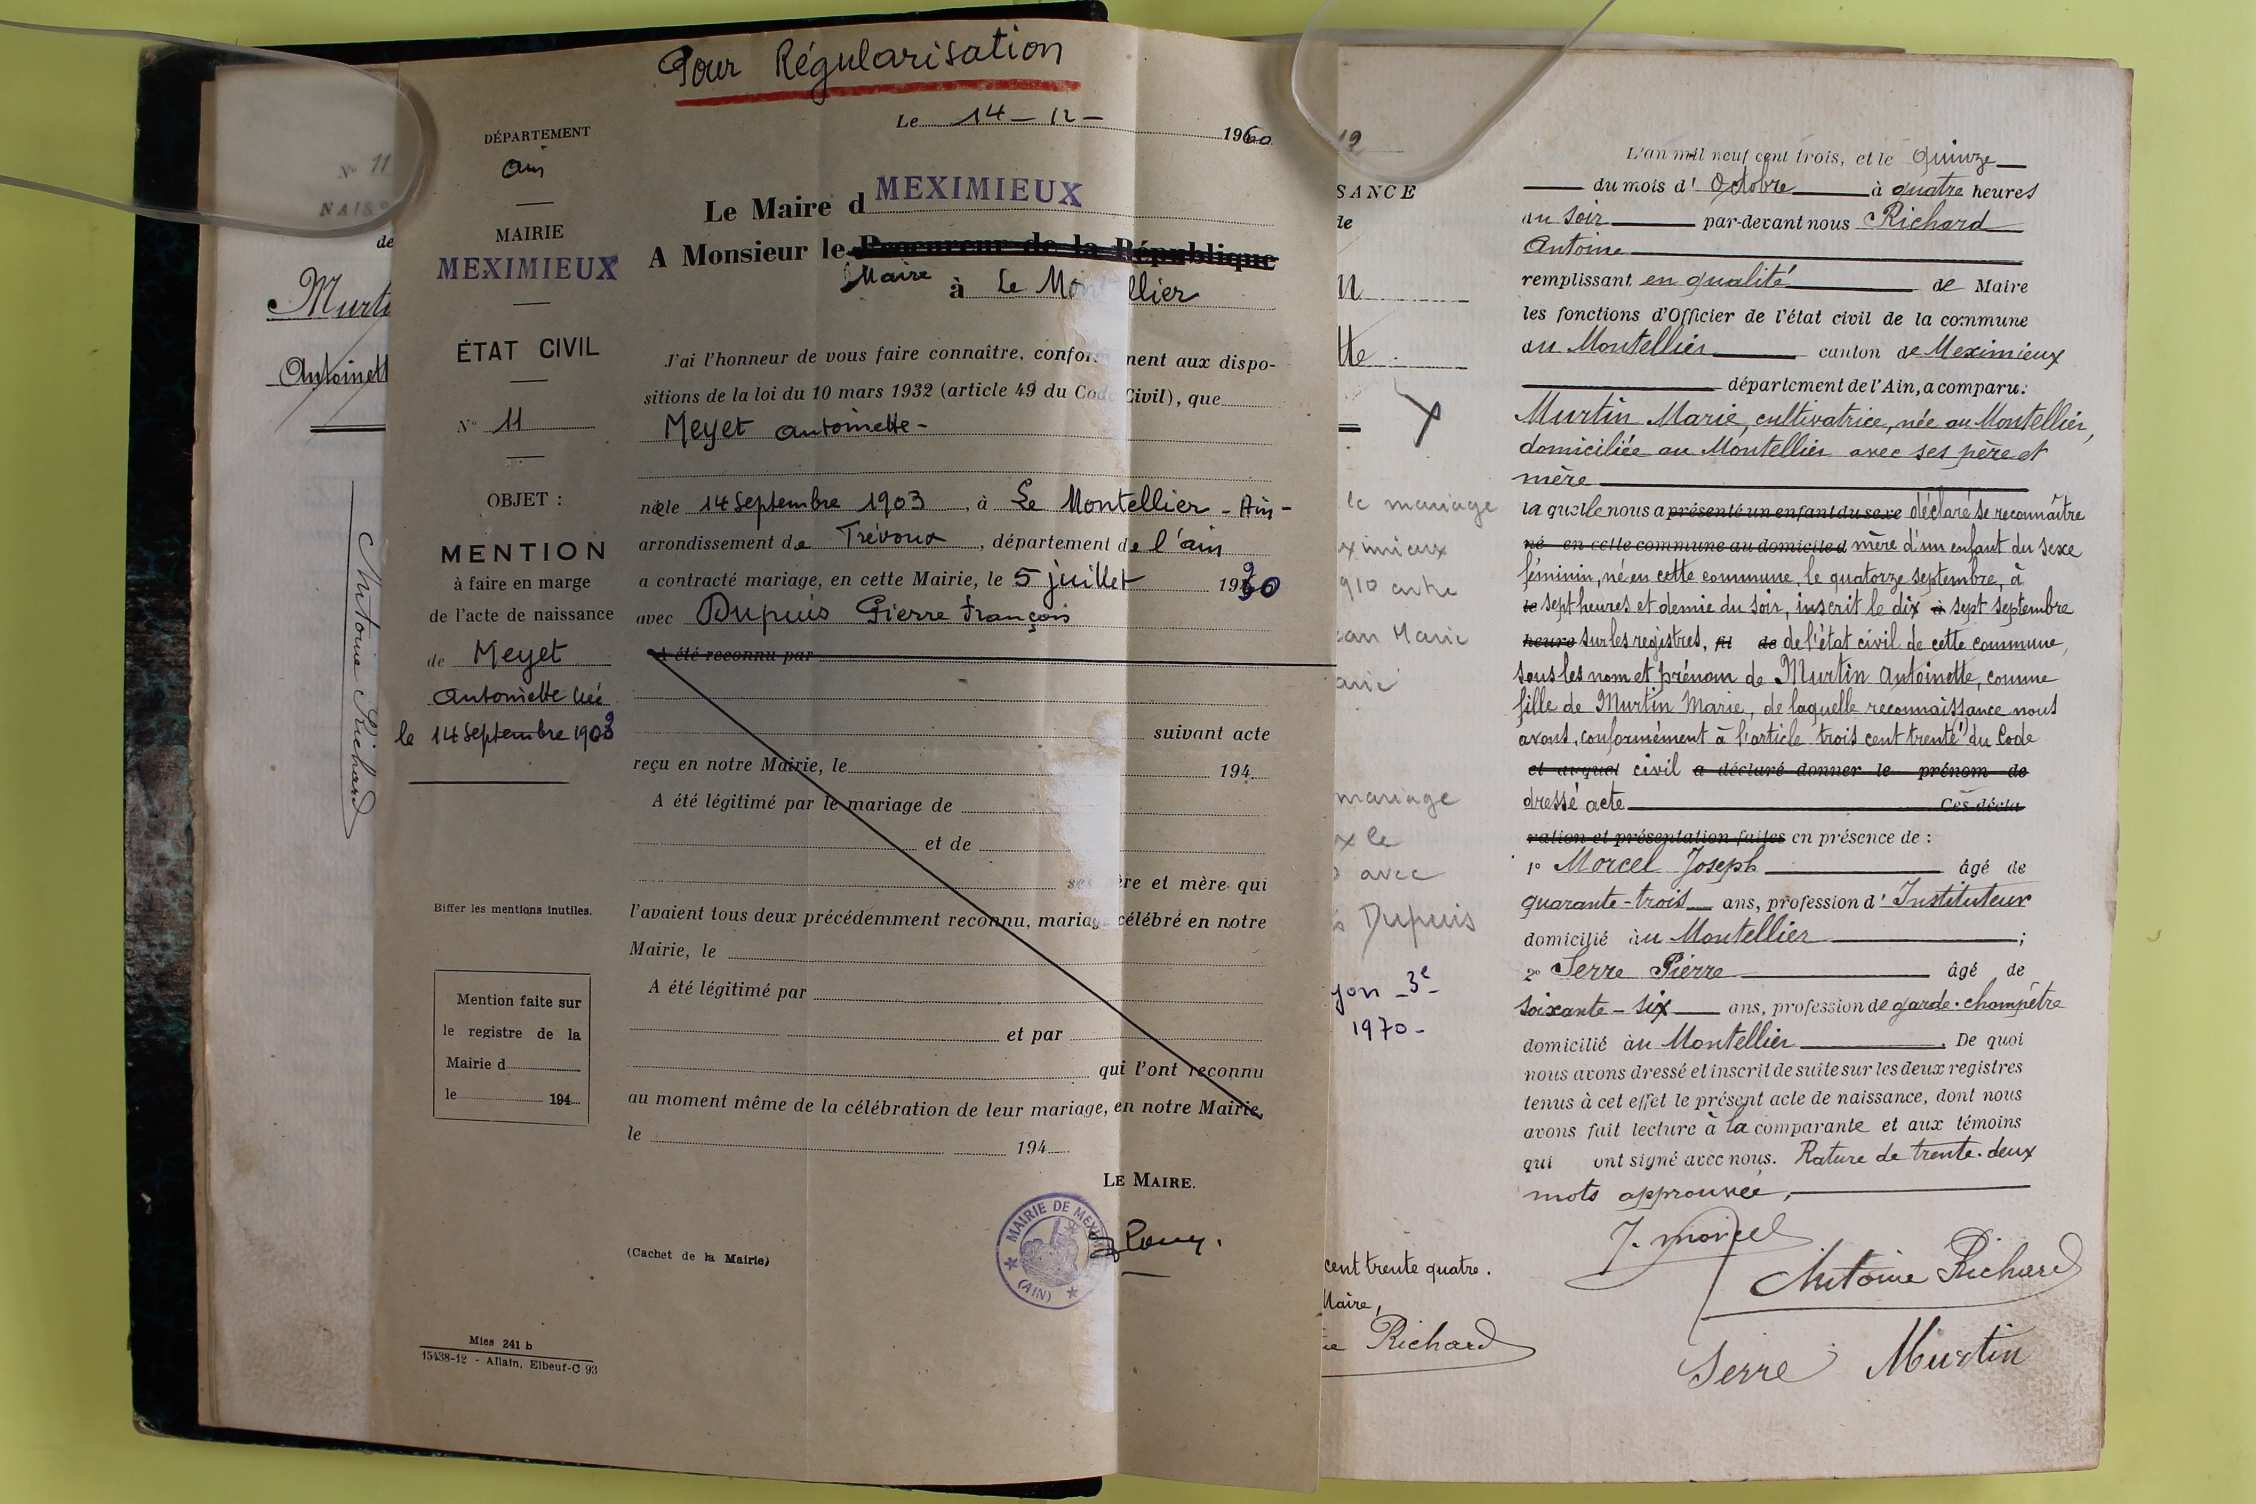 N° 11
NAISS
de
Murti
Antoinett
Antoine Richard
Pour Régularisation
Le 14 - 12 - 1960
DÉPARTEMENT
Ain
MAIRIE
MEXIMIEUX
ÉTAT CIVIL
N° 11
OBJET :
MENTION
à faire en marge
de l'acte de naissance
de Meyet
Antoinette née
le 14 Septembre 1903
Biffer les mentions inutiles.
Mention faite sur
le registre de la
Mairie d
le 194
Mies 241 b
15438-12 - Allain, Elbeuf-C 93
Le Maire d MEXIMIEUX
A Monsieur le Procureur de la République
Maire à Le Montellier
J'ai l'honneur de vous faire connaître, confor ment aux dispo-
sitions de la loi du 10 mars 1932 (article 49 du Code Civil), que
Meyet Antoinette -
née le 14 Septembre 1903, à Le Montellier - Ain -
arrondissement de Trévoux, département de l'ain
a contracté mariage, en cette Mairie, le 5 juillet 1930
avec Dupuis Pierre François
A été reconnu par
suivant acte
reçu en notre Mairie, le 194
A été légitimé par le mariage de
et de
ses père et mère qui
l'avaient tous deux précédemment reconnu, mariage célébré en notre
Mairie, le
A été légitimé par
et par
qui l'ont reconnu
au moment même de la célébration de leur mariage, en notre Mairie,
le 194
LE MAIRE.
(Cachet de la Mairie)
MAIRIE DE MEXIMI
(AIN)
12
SANCE
de
n
tte
le mariage
ximieux
910 entre
ean Marie
arie
mariage
x le
avec
s Dupuis
yon - 3e -
1970 -
cent trente quatre.
Maire,
ne Richard
L'an mil neuf cent trois, et le quinze
du mois d'Octobre à quatre heures
du soir par-devant nous Richard
Antoine
remplissant en qualité de Maire
les fonctions d'Officier de l'état civil de la commune
du Montellier canton de Meximieux
département de l'Ain, a comparu:
Murtin Marie, cultivatrice, née au Montellier,
domiciliée au Montellier avec ses père et
mère
laquelle nous a présenté un enfant du sexe déclaré se reconnaître
né en cette commune au domicile d mère d'un enfant du sexe
féminin, né en cette commune, le quatorze septembre, à
le sept heures et demie du soir, inscrit le dix à sept septembre
heure sur les registres, fil de de l'état civil de cette commune,
sous les nom et prénom de Murtin Antoinette, comme
fille de Murtin Marie, de laquelle reconnaissance nous
avons, conformément à l'article trois cent trente du Code
et auquel civil a déclaré donner le prénom de
dressé acte Ces décla
ration et présentation faites en présence de :
1° Morcel Joseph âgé de
quarante-trois ans, profession d'Instituteur
domicilié au Montellier ;
2° Serre Pierre âgé de
soixante-six ans, profession de garde-champêtre
domicilié au Montellier. De quoi
nous avons dressé et inscrit de suite sur les deux registres
tenus à cet effet le présent acte de naissance, dont nous
avons fait lecture à la comparante et aux témoins
qui ont signé avec nous. Rature de trente-deux
mots approuvée,
J. Morcel
Antoine Richard
Serre Murtin